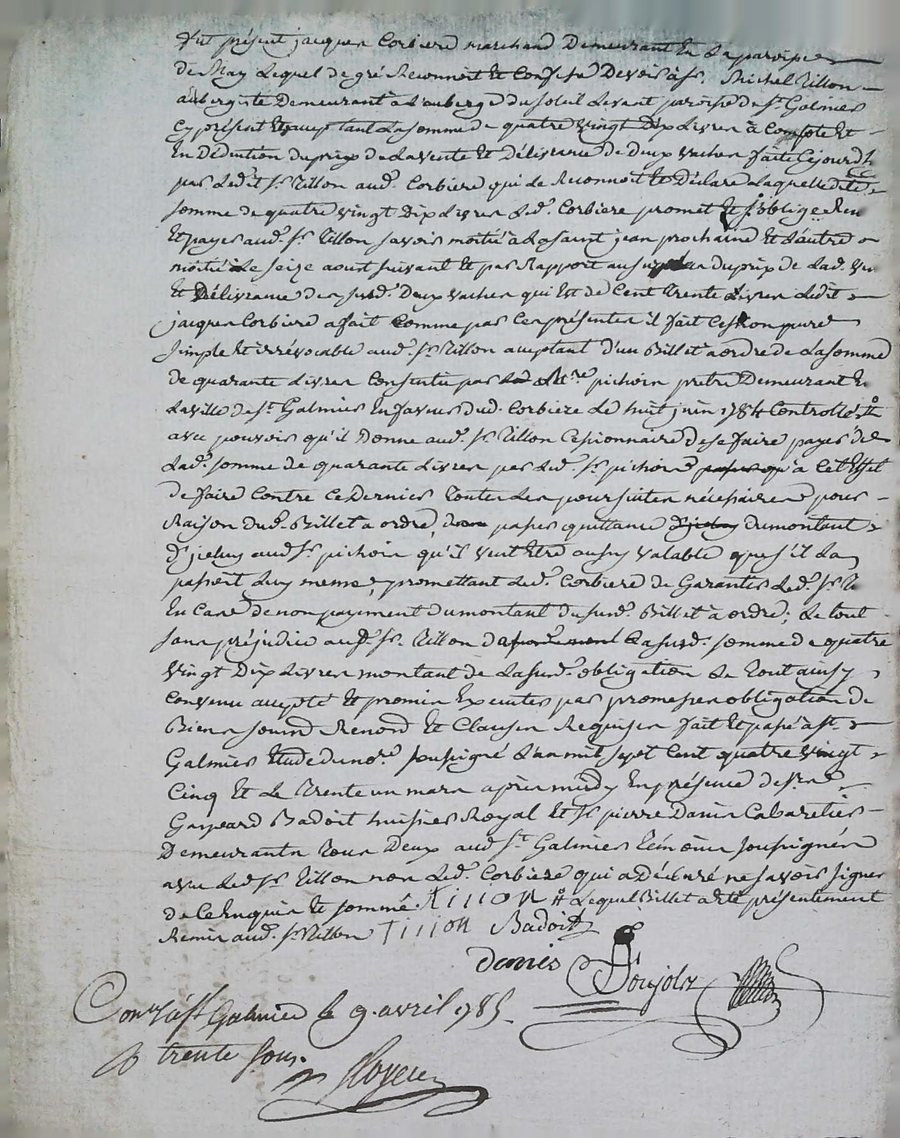 fut présent jacques Corbiere marchand Demeurant En La paroisse
de Lequel de gré Reconnoit Et Confesse Devoir à sr. Michel Tillon
aubergiste Demeurant à L'auberge du soleil Levant paroisse de st. Galmier
Cy présent Et acceptant La somme de quatre vingt Dix Livres à Compte Et
En Déduction du prix de La vente Et Délivrance de Deux vaches faite Cejourd'h
par Ledit sr. Tillon aud. Corbiere qui Le Reconnoit Et Déclare Laquelle dite
somme de quatre vingt Dix Livres Led. Corbiere promet Et s'oblige
Et payer aud. sr. Tillon savoir moitié à La saint jean prochaine Et L'autre
moitié Le seize aoust suivant Et par Rapport au du prix de Lad.
Et Délivrance des susd. Deux vaches qui Est de Cent trente Livres Ledit
jacques Corbiere a fait Comme par Ces présentes il fait Cession pure
simple Et irrévocable aud. sr. Tillon acceptant d'un Billet à ordre de La somme
de quarante Livres Consentie par pichoin pretre Demeurant En
La ville de st. Galmier En faveur dud. Corbiere Le huit juin 1784 Controllé #
avec pouvoir qu'il Donne aud. sr. Tillon Cessionnaire de se faire payer de
Lad. somme de quarante Livres par Led. sr. pichoin à Cet Effet
de faire Contre Ce Dernier toutes Les poursuites nécessaires pour
Raison dud. Billet à ordre, passer quittance du montant
D'jceluy aud. sr. pichoin qu'il veut Etre aussy valable que s'il La
passoit Luy meme, promettant Led. Corbiere de Garantir Led. sr.
En Cas de non payement du montant du susd. Billet à ordre, Le tout
sans préjudice aud. sr. Tillon La susd. somme de quatre
vingt Dix Livres montant de La susd. obligation Le tout ainsy
Convenu accepté Et promis Executer par promesses obligation de
Biens soumis Renond Et Clauses Requises fait Et passé à st.
Galmier Etude du nore. soussigné L'an mil sept Cent quatre vingt
Cinq Et Le trente un mars après midy En présence de
Gaspard Badoit huissier Royal Et sr. pierre Danis Cabaretier
Demeurants tous Deux aud. st. Galmier témoins soussignés
avec Led. sr. Tillon non Led. Corbiere qui a Déclaré ne savoir signer
de Ce Enquis Et sommé. Tillon # Lequel Billet a Eté présentement
Remis aud. sr. Tillon Tillon Badoit
danis Poujols
Conlé à st Galmier le 9. avril 1785.
R trente sous.